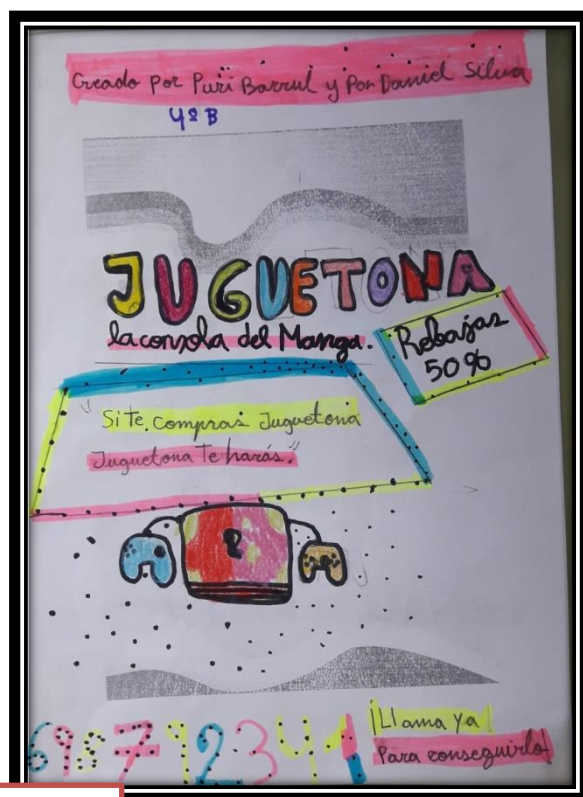 Creado por Puri Barrul y Por Daniel Silva
4º B
JUGUETONA
la consola del Manga.
Rebajas
50%
"Si te compras Juguetona
Juguetona Te harás."
698792341
¡Llama ya
Para conseguirlo!